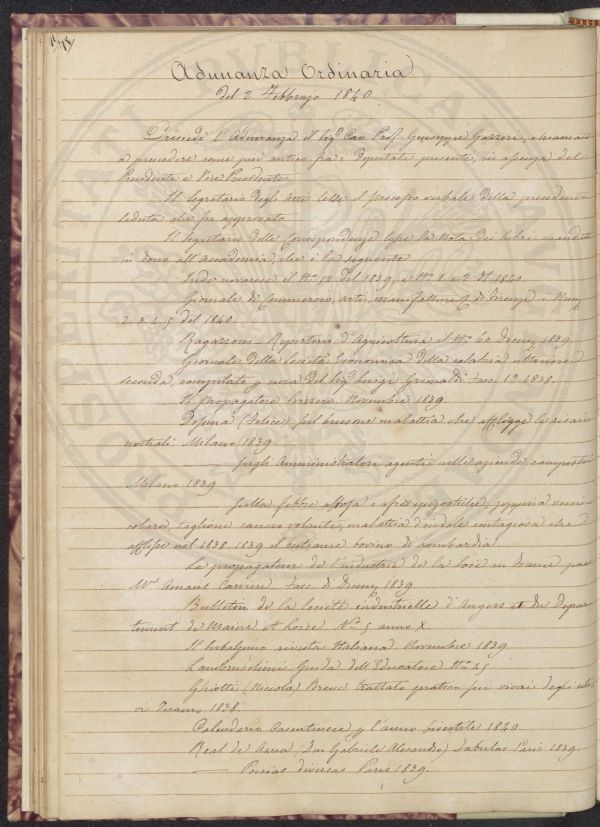 Adunanza Ordinaria
del 2 Febbrajo 1840
Presiedè l'Adunanza il Sig.r Cav. Prof. Giuseppe Gazzeri, chiamato
a presedere come più antico fra i Deputati presenti, in assenza del
Presidente e Vice Presidente
Il Segretario degli Atti lesse il processo verbale della precedente
seduta che fu approvato
Il Segretario delle Corrispondenze lesse la Nota dei libri mandati
in dono all'Accademia, che è la seguente
novarese il N.o 52 del 1839, e N.o 1 e 2 del 1840.
Giornale di Commercio, arti, manifatture di Firenze i Num.
2. 3. 4. 5 del 1840.
Ragazzoni - Repertorio d'Agricoltura il N.o 60 Decem. 1839.
Giornale della Società Economica della Calabria ulteriore
seconda, compilato p cura del Sig.r Luigi Grimaldi Fasc. 1.o 1838.
Il Propagatore Novembre 1839.
(Felice) sul brusone malattia che affligge le risaie
nostrali. Milano 1839.
Sugli Amministratori agenti alle aziende campestri
Milano 1839
Sulla febbre aftosa
cancro volante, malattia d'indole contagiosa che
afflisse nel 1838. 1839 il bestiame bovino di Lombardia
Le propagateur de l'industrie de la Soie en France par
M.r Amans Carrier Fasc. di Dicem. 1839.
Bulletin de la Société industrielle d'Angers et du Depar-
tement de Maine et Loire N.o 5 anno X.
Il Subalpino rivista Italiana. Novembre 1839.
Lambruschini Guida dell'Educatore N.o 45
Ghiotti (Niccola) Breve trattato pratico sui vivai degli uli-
vi Teramo 1838.
Calendario Casentinese p l'anno bisestile 1840.
Real de Azua (Don Gabriele Alesandro) Fabulas Paris 1839.
— Poesias diversas Paris 1839.